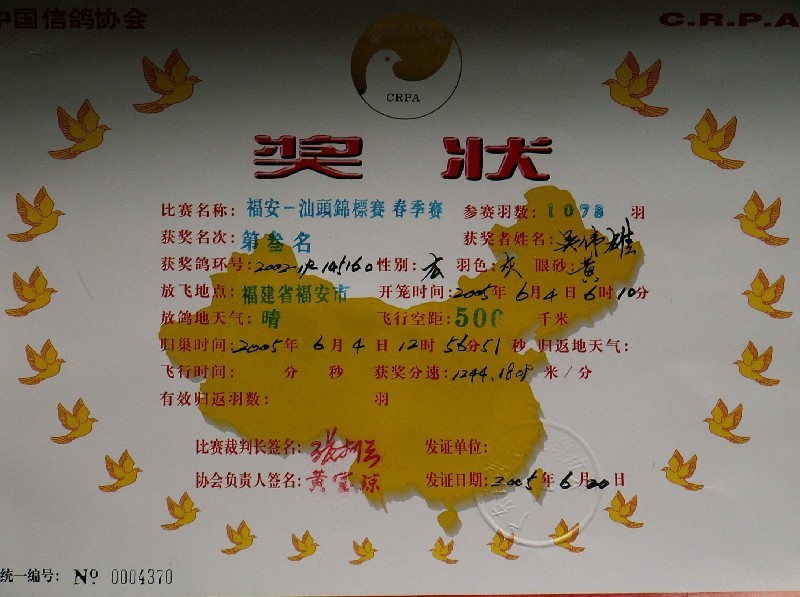 中国信鸽协会 C.R.P.A
CRPA
奖 状
比赛名称：福安－汕頭錦標賽 春季賽 参赛羽数：1078 羽
获奖名次：第叁名 获奖者姓名：吴伟雄
获奖鸽环号： 性别： 羽色：灰 眼砂：黄
放飞地点：福建省福安市 开笼时间：2005年6月4日6时10分
放鸽地天气：晴 飞行空距：500 千米
归巢时间：2005年6月4日12时56分51秒 归返地天气：
飞行时间： 分 秒 获奖分速：1244.1809 米/分
有效归返羽数： 羽
比赛裁判长签名： 发证单位：
协会负责人签名： 发证日期：2005年6月20日
统一编号：№ 0004370